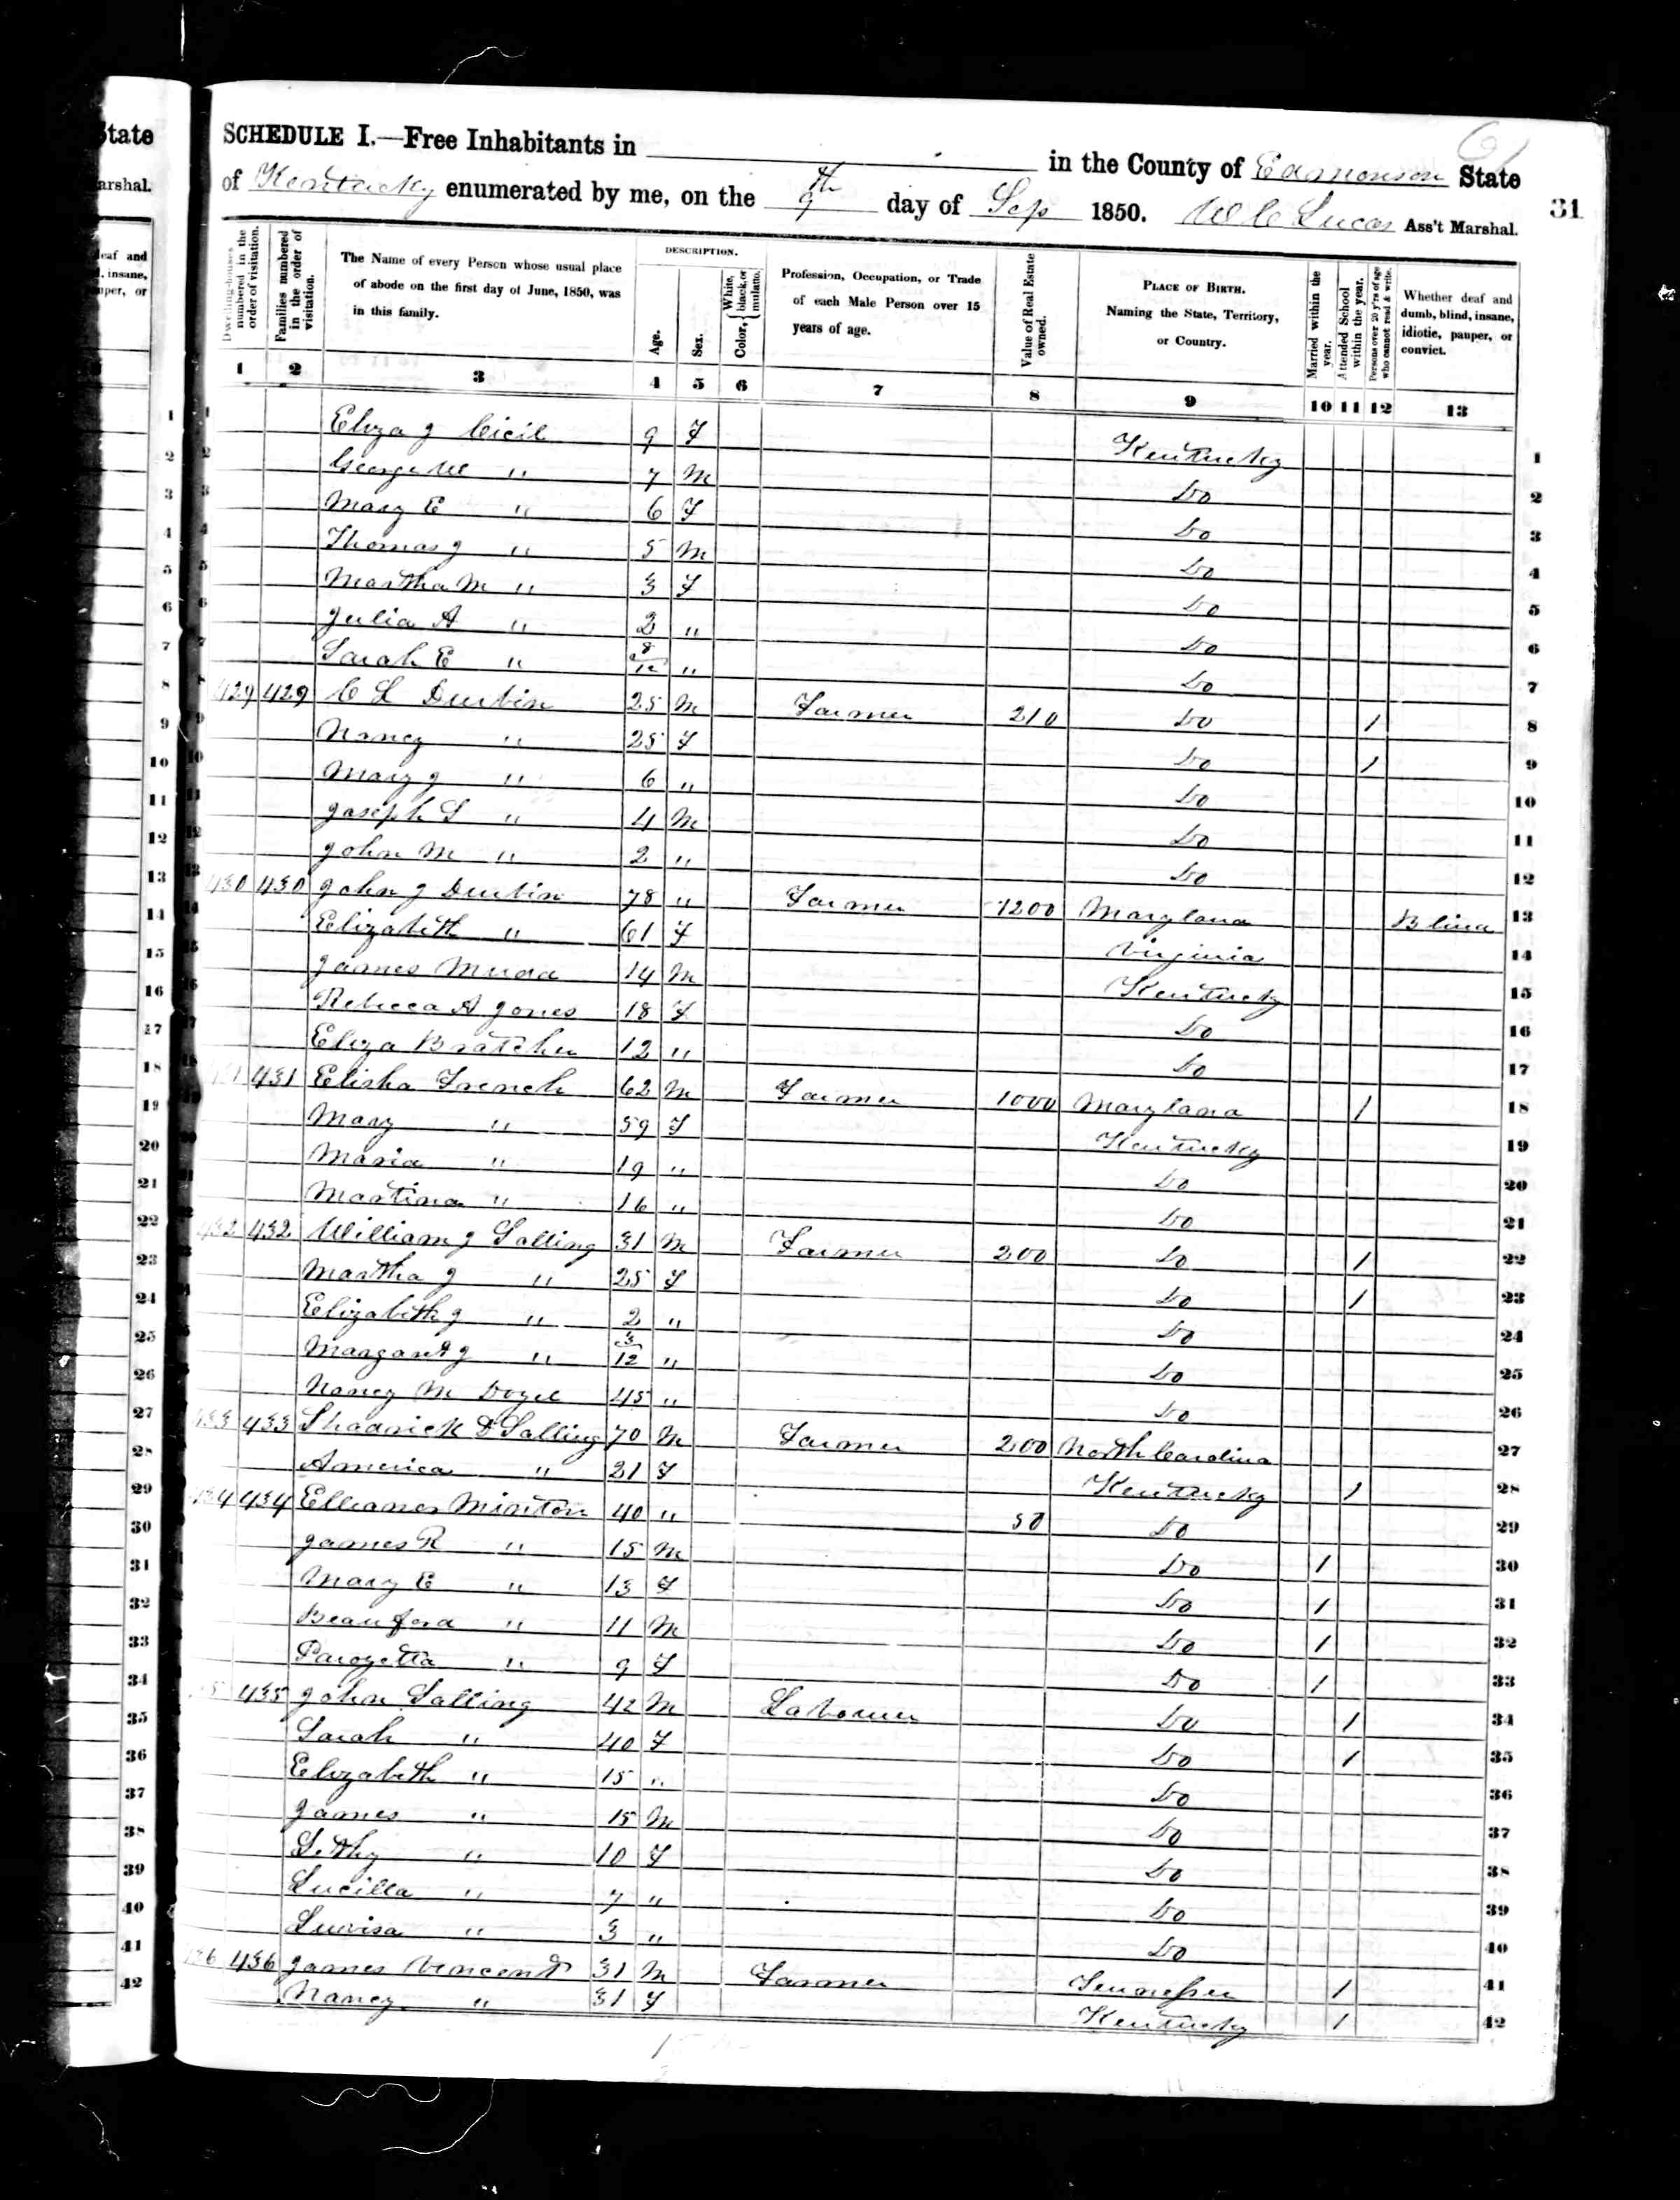 State
arshal.
SCHEDULE I.—Free Inhabitants in in the County of Edmonson State
of Kentucky enumerated by me, on the 9th day of Sep 1850. W C Lucas Ass't Marshal.
31
Dwelling-houses numbered in the order of visitation.
Families numbered in the order of visitation.
The Name of every Person whose usual place of abode on the first day of June, 1850, was in this family.
DESCRIPTION.
Age.
Sex.
Color, { White, black, or mulatto.
Profession, Occupation, or Trade of each Male Person over 15 years of age.
Value of Real Estate owned.
PLACE OF BIRTH. Naming the State, Territory, or Country.
Married within the year.
Attended School within the year.
Persons over 20 y'rs of age who cannot read & write.
Whether deaf and dumb, blind, insane, idiotic, pauper, or convict.
1 2 3 4 5 6 7 8 9 10 11 12 13
1 Eliza J Cicil 9 F Kentucky 1
2 George W " 7 M Do 2
3 Mary E " 6 F Do 3
4 Thomas J " 5 M Do 4
5 Martha M " 3 F Do 5
6 Julia A " 2 " Do 6
7 Sarah E " 8/12 " Do 7
8 429 429 C L Durbin 25 M Farmer 210 Do 1 8
9 Nancy " 25 F Do 1 9
10 Mary J " 6 " Do 10
11 Joseph S " 4 M Do 11
12 John M " 2 " Do 12
13 430 430 John J Durbin 78 " Farmer 1200 Maryland Blind 13
14 Elizabeth " 61 F Virginia 14
15 James 14 M Kentucky 15
16 Rebecca A Jones 18 F Do 16
17 Eliza Bratcher 12 " Do 17
18 431 431 Elisha French 62 M Farmer 1000 Maryland 1 18
19 Mary " 59 F Kentucky 19
20 Maria " 19 " Do 20
21 Martina " 16 " Do 21
22 432 432 William J Salling 31 M Farmer 200 Do 1 22
23 Martha J " 25 F Do 1 23
24 Elizabeth J " 2 " Do 24
25 Margaret J " 3/12 " Do 25
26 Nancy M Doyel 45 " Do 26
27 433 433 Shadrick D Salling 70 M Farmer 200 North Carolina 27
28 America " 21 F Kentucky 1 28
29 434 434 Elleanor Minton 40 " 50 Do 29
30 James R " 15 M Do 1 30
31 Mary E " 13 F Do 1 31
32 Beauford " 11 M Do 1 32
33 Parozetta " 9 F Do 1 33
34 435 435 John Salling 42 M Labourer Do 1 34
35 Sarah " 40 F Do 1 35
36 Elizabeth " 15 " Do 36
37 James " 15 M Do 37
38 " 10 F Do 38
39 Lucilla " 7 " Do 39
40 Luvisa " 3 " Do 40
41 436 436 James Vincent 31 M Farmer Tennessee 1 41
42 Nancy " 31 F Kentucky 1 42